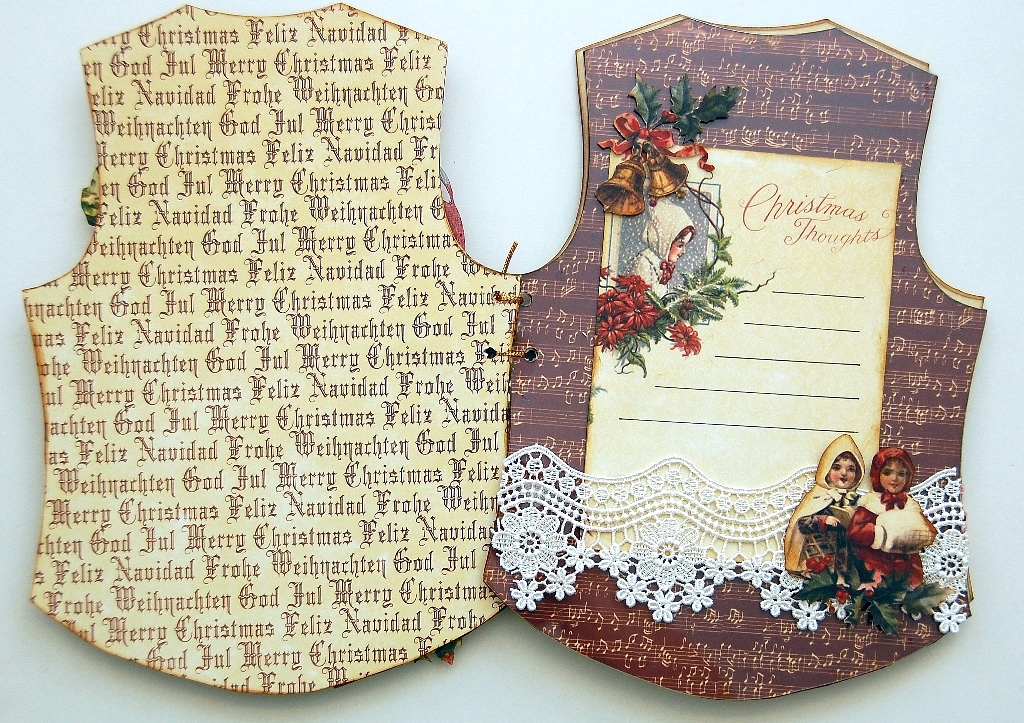 Christmas Feliz Navidad
en God Jul Merry Christmas Feliz
eliz Navidad Frohe Weihnachten Go
Weihnachten God Jul Merry Christ
Merry Christmas Feliz Navidad Fr
en God Jul Merry Christmas Feli
Feliz Navidad Frohe Weihnachten G
eihnachten God Jul Merry Christmas
Merry Christmas Feliz Navidad Frohe W
nachten God Jul Merry Christmas Feliz Navid
mas Feliz Navidad Frohe Weihnachten God Jul
ohe Weihnachten God Jul Merry Christmas Fel
Jul Merry Christmas Feliz Navidad Frohe Weih
achten God Jul Merry Christmas Feliz Navida
as Feliz Navidad Frohe Weihnachten God Jul
Weihnachten God Jul Merry Christmas Feliz
Merry Christmas Feliz Navidad Frohe Weihn
chten God Jul Merry Christmas Feliz Navid
s Feliz Navidad Frohe Weihnachten God
Frohe Weihnachten God Jul Merry Christmas
ul Merry Christmas Feliz Navidad Frohe
God Jul Merry Christmas F
Navidad Frohe Weihnachten
God Jul Me
Christmas
Thoughts